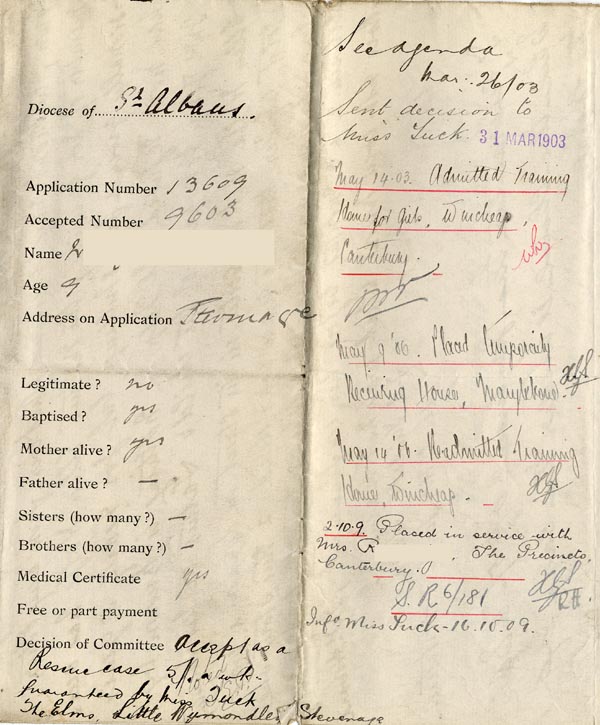 Diocese of St Albans.
Application Number 13609
Accepted Number 9603
Name
Age 9
Address on Application Stevenage
Legitimate? no
Baptised? yes
Mother alive? yes
Father alive? —
Sisters (how many?) —
Brothers (how many?) —
Medical Certificate yes
Free or part payment
Decision of Committee Accept as a
Rescue case 5/. a wk.
Guaranteed by Miss Tuck
The Elms, Little Wymondley Stevenage
See agenda
Mar: 26/03
Sent decision to
Miss Tuck. 31 MAR 1903
May 14.03. Admitted Training
Home for Girls, Wincheap,
Canterbury.
May 9 '06. Placed temporarily
Receiving House, Marylebone.
May 14 '06. Re-admitted Training
Home, Wincheap.
2.10.9. Placed in service with
Mrs. , The Precincts,
Canterbury.
S. R 6/181
Infn. Miss Tuck - 16.10.09.